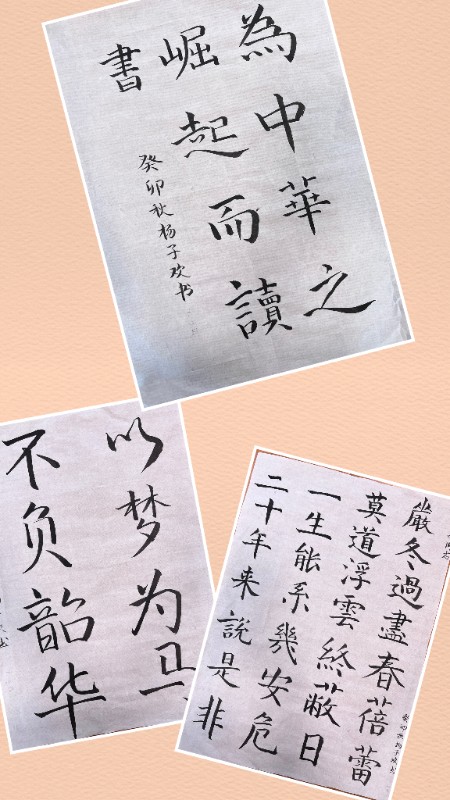 為中華之
崛起而讀
書
癸卯秋杨子欢书
以梦为马
不负韶华
嚴冬過盡春蓓蕾
莫道浮雲終蔽日
一生能系幾安危
二十年来說是非
癸卯秋杨子欢书